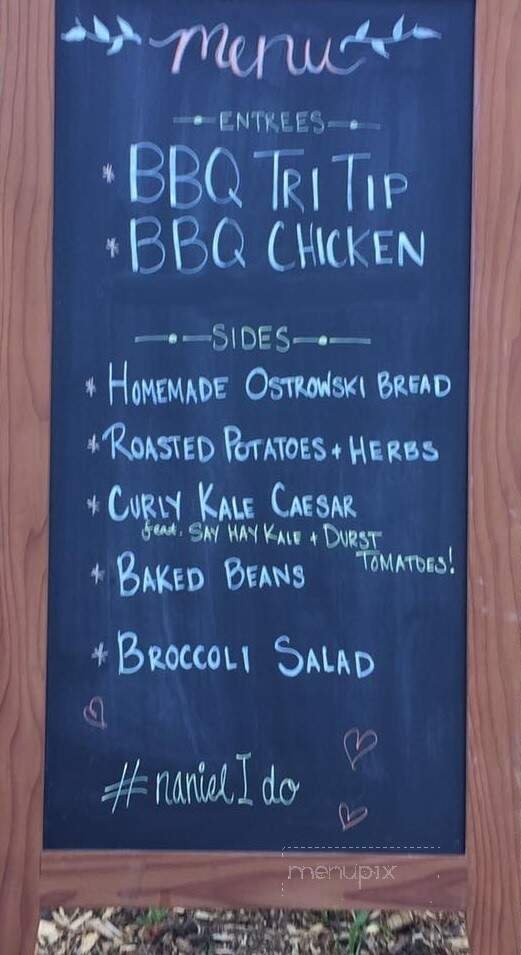 menu
ENTREES
* BBQ TRI TIP
* BBQ CHICKEN
SIDES
* HOMEMADE OSTROWSKI BREAD
* ROASTED POTATOES + HERBS
* CURLY KALE CAESAR
feat. SAY HAY KALE + DURST
TOMATOES!
* BAKED BEANS
* BROCCOLI SALAD
#nanielIdo
menupix